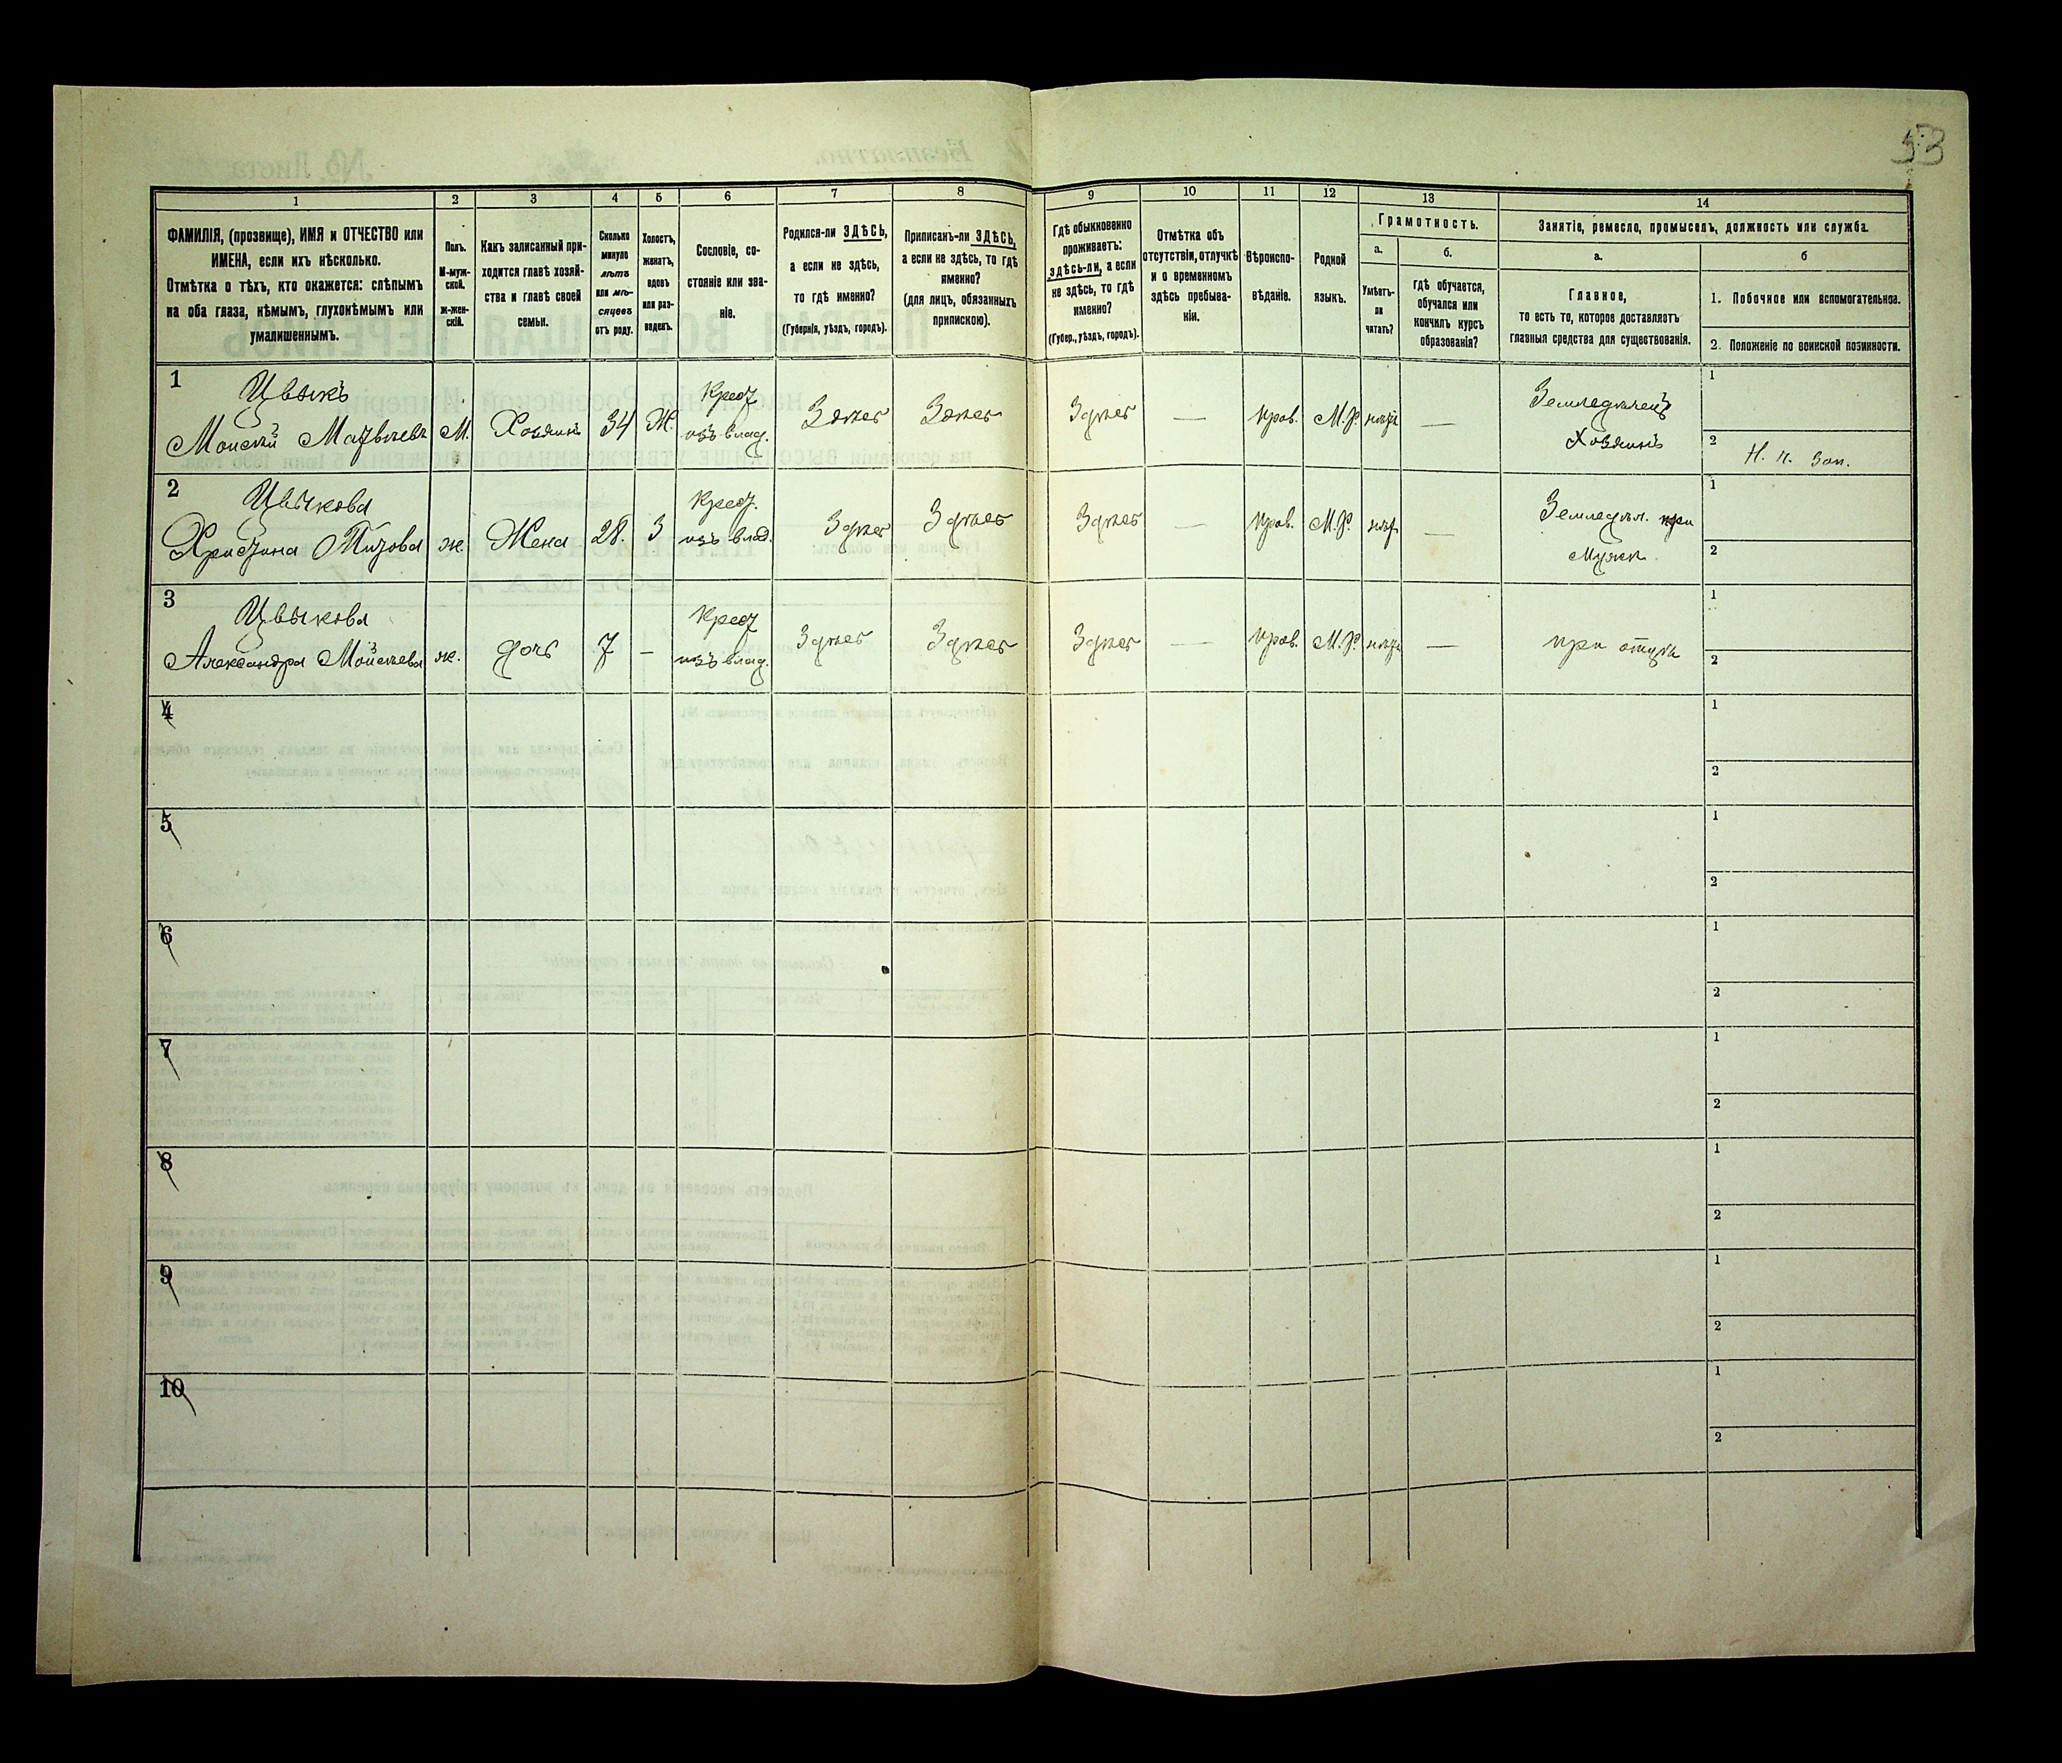 53
1 2 3 4 5 6 7 8 9 10 11 12 13 14
ФАМИЛІЯ, (прозвище), ИМЯ и ОТЧЕСТВО или
ИМЕНА, если ихъ нѣсколько.
Отмѣтка о тѣхъ, кто окажется: слѣпымъ
на оба глаза, нѣмымъ, глухонѣмымъ или
умалишеннымъ.
Полъ.
М-муж-
ской.
ж-жен-
скій.
Какъ записанный при-
ходится главѣ хозяй-
ства и главѣ своей
семьи.
Сколько
минуло
лѣтъ
или мѣ-
сяцевъ
отъ роду.
Холостъ,
женатъ,
вдовъ
или раз-
веденъ.
Сословіе, со-
стояніе или зва-
ніе.
Родился-ли ЗДѢСЬ,
а если не здѣсь,
то гдѣ именно?
(Губернія, уѣздъ, городъ).
Приписанъ-ли ЗДѢСЬ,
а если не здѣсь, то гдѣ
именно?
(для лицъ, обязанныхъ
припискою).
Гдѣ обыкновенно
проживаетъ:
здѣсь-ли, а если
не здѣсь, то гдѣ
именно?
(Губер., уѣздъ, городъ).
Отмѣтка объ
отсутствіи, отлучкѣ
и о временномъ
здѣсь пребыва-
ніи.
Вѣроиспо-
вѣданіе.
Родной
языкъ.
Грамотность.
а.
Умѣетъ-
ли
читать?
б.
гдѣ обучается,
обучался или
кончилъ курсъ
образованія?
Занятіе, ремесло, промыселъ, должность или служба.
а.
Главное,
то есть то, которое доставляетъ
главныя средства для существованія.
б
1. Побочное или вспомогательное.
2. Положеніе по воинской повинности.
1 Цвыкъ
Моисей Матвѣевъ М. Хозяинъ 34 Ж. Крест
изъ влад. Здѣсь Здѣсь Здѣсь — прав. М.Р. нѣтъ — Земледѣлецъ
Хозяинъ
1
2 Н. п. Зап.
2 Цвыкова
Христина Титова ж. Жена 28. З Крест.
изъ влад. Здѣсь Здѣсь Здѣсь — прав. М.Р. нѣтъ — Земледѣл. при
Мужѣ
1
2
3 Цвыкова
Александра Моисѣева ж. дочь 7 — Крест
изъ влад. Здѣсь Здѣсь Здѣсь — прав. М.Р. нѣтъ — при отцѣ
1
2
4 1
2
5 1
2
6 1
2
7 1
2
8 1
2
9 1
2
10 1
2